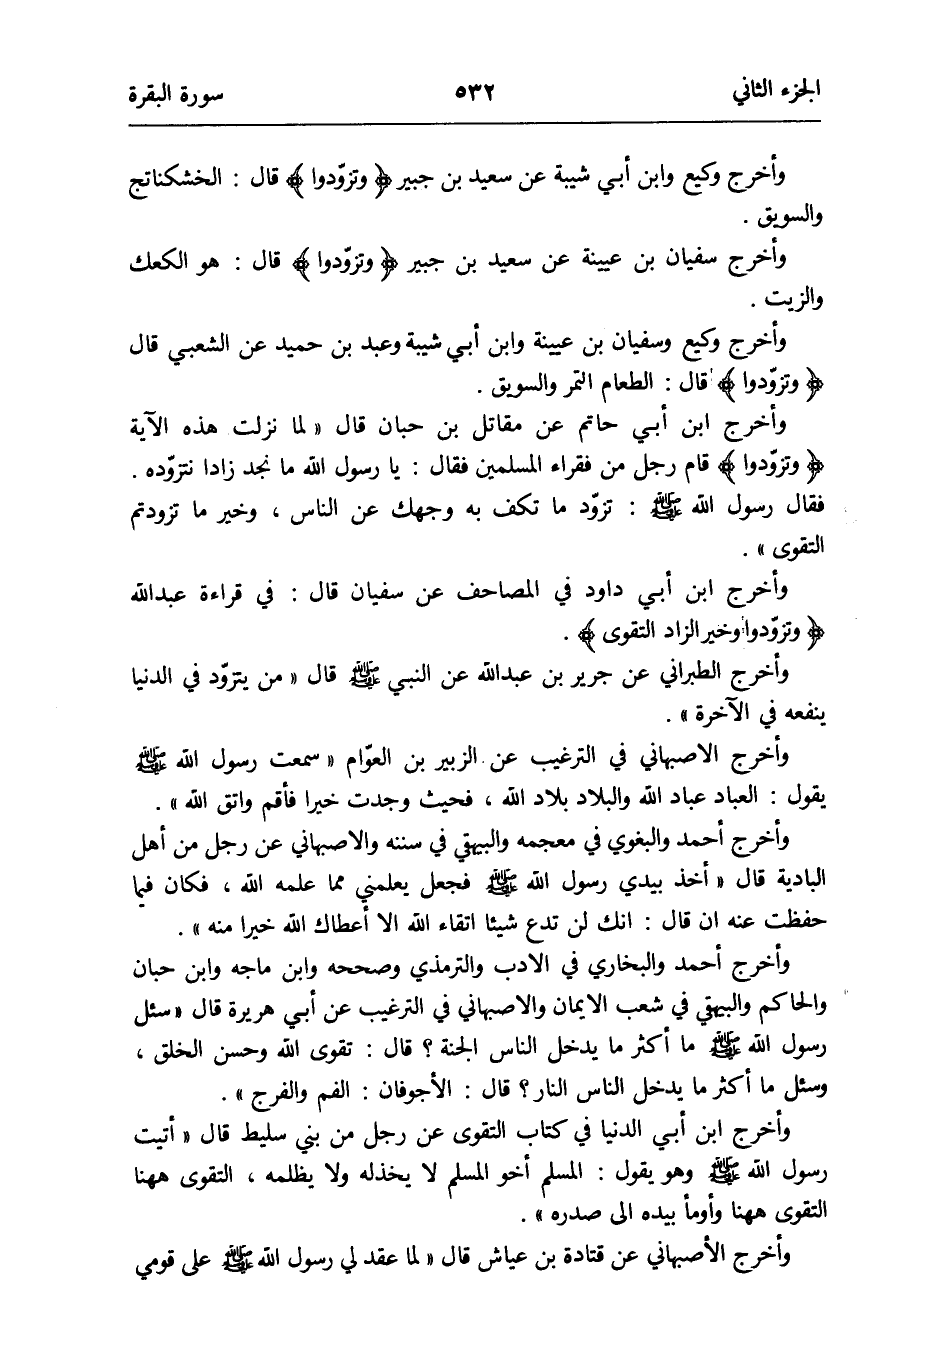 الجزء الثاني ٥٣٢ سورة البقرة
وأخرج وكيع وابن أبي شيبة عن سعيد بن جبير ﴿ وتزوّدوا ﴾ قال : الخشكناتج
والسويق .
وأخرج سفيان بن عيينة عن سعيد بن جبير ﴿ وتزوّدوا ﴾ قال : هو الكعك
والزيت .
وأخرج وكيع وسفيان بن عيينة وابن أبي شيبة وعبد بن حميد عن الشعبي قال
﴿ وتزوّدوا ﴾ قال : الطعام التمر والسويق .
وأخرج ابن أبي حاتم عن مقاتل بن حبان قال « لما نزلت هذه الآية
﴿ وتزوّدوا ﴾ قام رجل من فقراء المسلمين فقال : يا رسول الله ما نجد زادا نتزوّده .
فقال رسول الله ﷺ : تزوّد ما تكف به وجهك عن الناس ، وخير ما تزودتم
التقوى » .
وأخرج ابن أبي داود في المصاحف عن سفيان قال : في قراءة عبدالله
﴿ وتزوّدوا وخير الزاد التقوى ﴾ .
وأخرج الطبراني عن جرير بن عبدالله عن النبي ﷺ قال « من يتزوّد في الدنيا
ينفعه في الآخرة » .
وأخرج الاصبهاني في الترغيب عن الزبير بن العوّام « سمعت رسول الله ﷺ
يقول : العباد عباد الله والبلاد بلاد الله ، فحيث وجدت خيرا فأقم واتق الله » .
وأخرج أحمد والبغوي في معجمه والبيهقي في سننه والاصبهاني عن رجل من أهل
البادية قال « أخذ بيدي رسول الله ﷺ فجعل يعلمني مما علمه الله ، فكان فيما
حفظت عنه ان قال : انك لن تدع شيئا اتقاء الله الا أعطاك الله خيرا منه » .
وأخرج أحمد والبخاري في الادب والترمذي وصححه وابن ماجه وابن حبان
والحاكم والبيهقي في شعب الايمان والاصبهاني في الترغيب عن أبي هريرة قال « سئل
رسول الله ﷺ ما أكثر ما يدخل الناس الجنة ؟ قال : تقوى الله وحسن الخلق ،
وسئل ما أكثر ما يدخل الناس النار ؟ قال : الأجوفان : الفم والفرج » .
وأخرج ابن أبي الدنيا في كتاب التقوى عن رجل من بني سليط قال « أتيت
رسول الله ﷺ وهو يقول : المسلم أخو المسلم لا يخذله ولا يظلمه ، التقوى ههنا
التقوى ههنا وأومأ بيده الى صدره » .
وأخرج الأصبهاني عن قتادة بن عياش قال « لما عقد لي رسول الله ﷺ على قومي